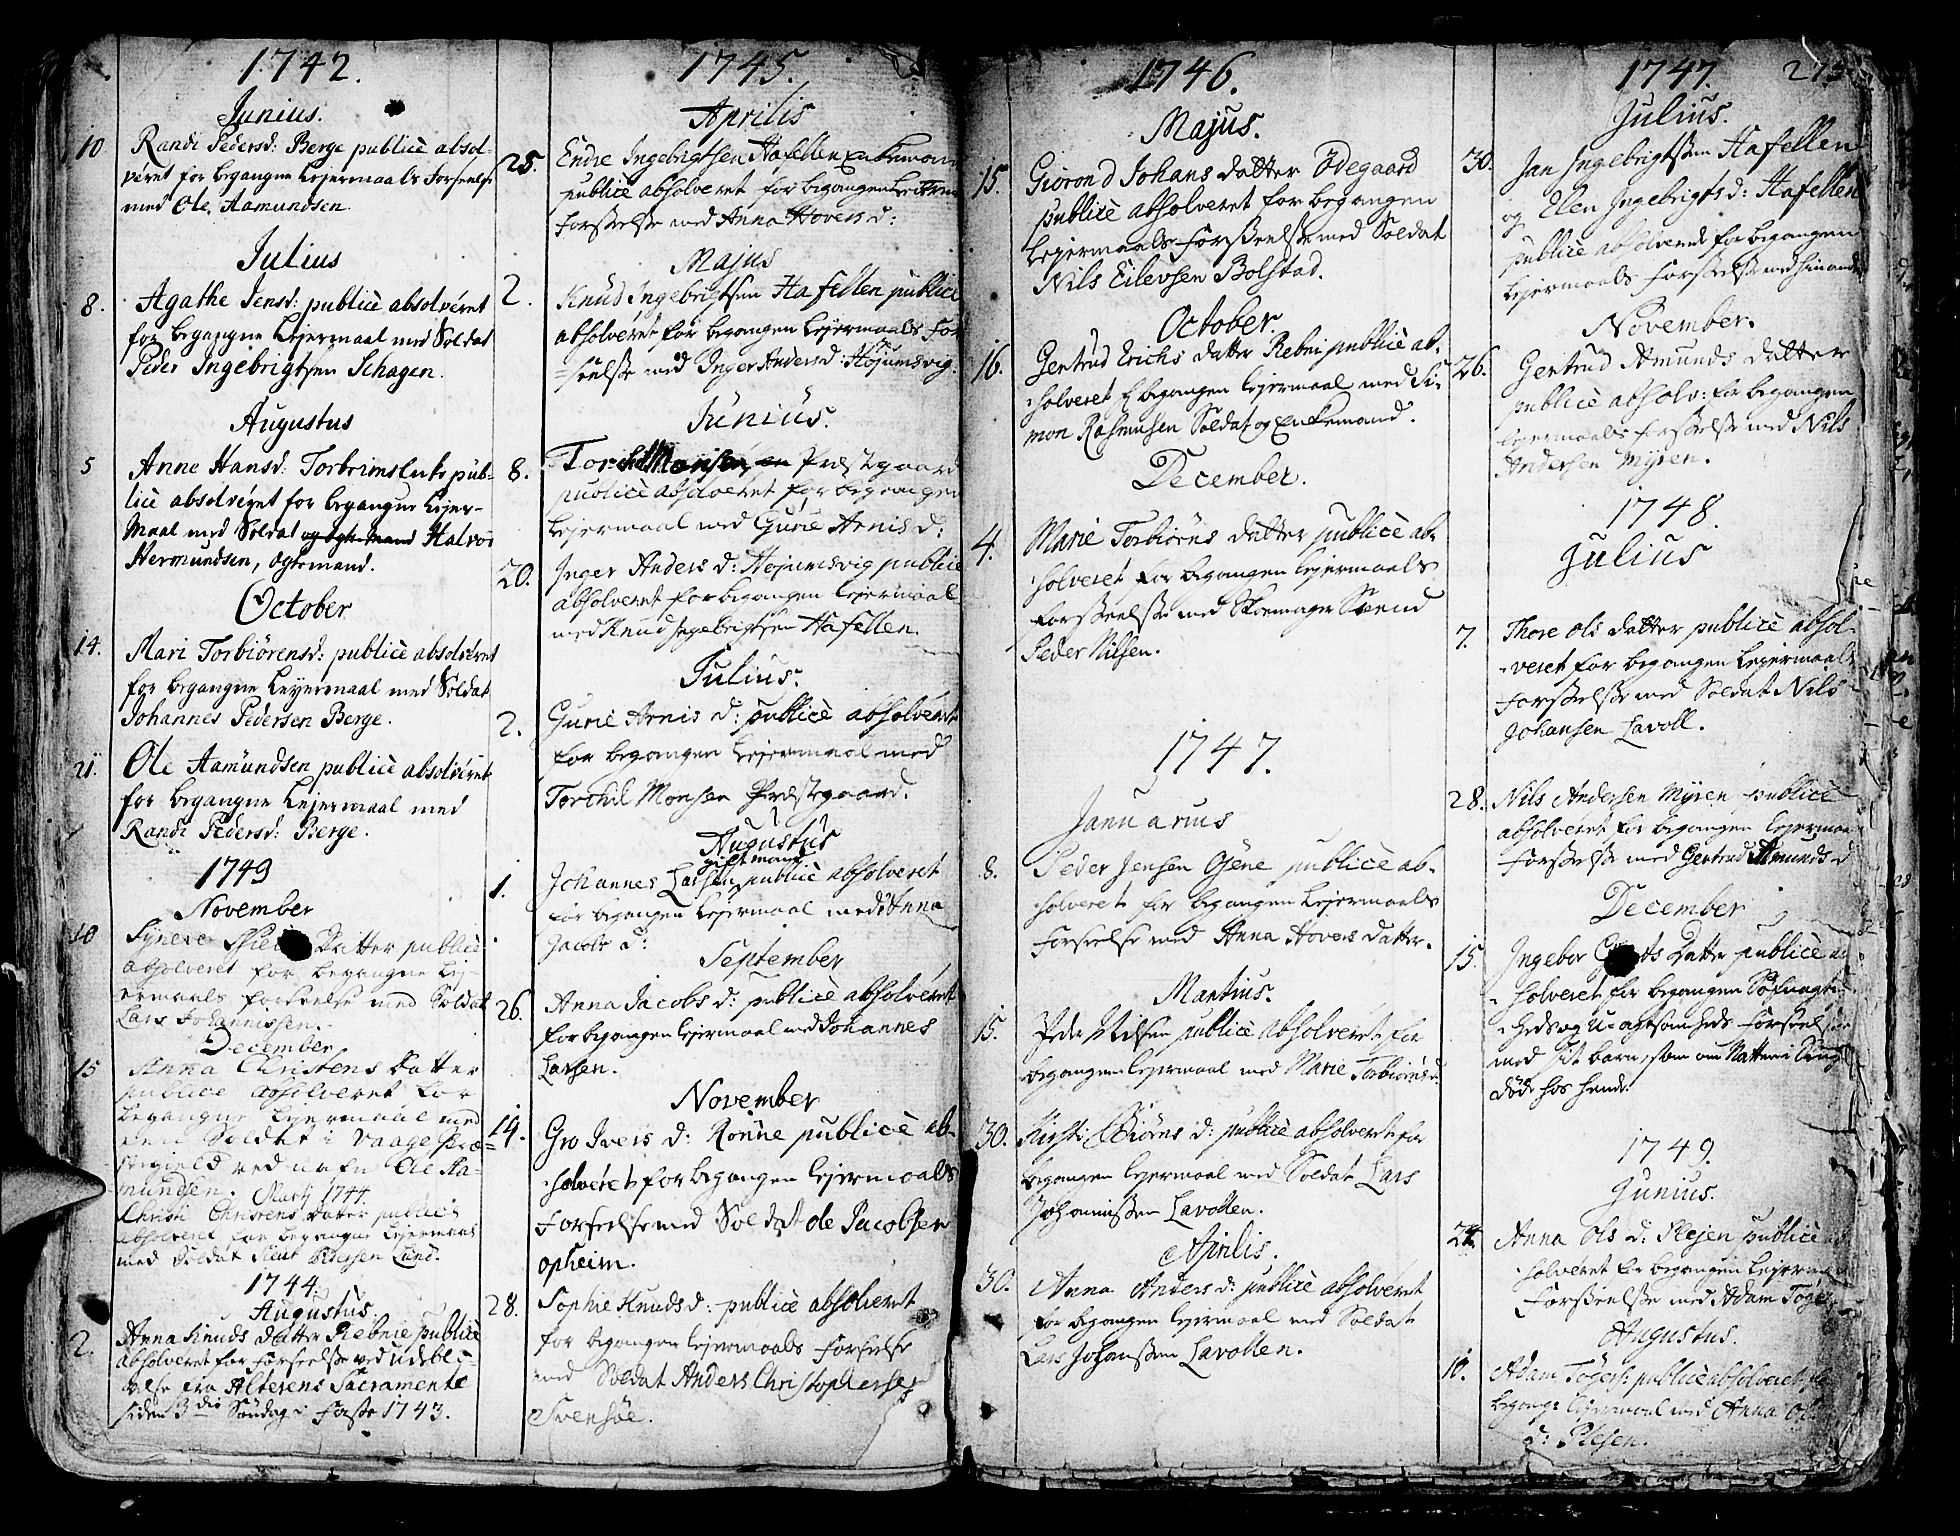 1742.
Junius.
10 Randi Pedersd: Berge publicè absol-
véret for begangne Lejermaals Forseelse
med Ole Aamundsen.
Julius
8. Agathe Jensd: publicè absolvéret
for begangne Lejermaal med Soldat
Peder Ingebrigtsen Schagen.
Augustus
5 Anne Hansd: pub-
licè absolvéret for begangne Lejer-
Maal med Soldat Halvor
Hermundsen, ogtemand.
October
14. Mari Torbiørensd: publicè absolvéret
for begangne Leyermaal med Soldat
Johannes Pedersen Berge.
21. Ole Aamundsen publicè absolvéret
for begangne Lejermaal med
Randi Pedersd: Berge.
1743
November
10 Syneve Datter publicè
absolveret for begangne Lej-
ermaals forseelse med Soldat
Lars Johannissen.
December
15 Anna Christens Datter
publice absolveret for
begangne Lejermaal med
een Soldat i Vaage Præ-
stegield ved nafn Ole Aa-
mundsen. Martj 1744.
Christi Christens Datter publicè
absolveret for begangne Lejermaal
med Soldat Pedersen Lund.
1744.
Augustus.
2. Anna Knuds datter Rebnie publicè
absolveret for Forseelse ved udebli-
velse fra Alterens Sacramente
siden 3die Søndag i Faste 1743.
1745.
Aprilis
25. Endre Ingebrigtsen Hafellen Enkemand
publicè absolveret for begangen Lejerm
Forseelse med Anna Hovers d:
Majus
2. Knud Ingebrigtsen Hafellen publicè
absolveret for begangen Lejermaals For-
seelse med Inger Anders d: Højumsvig.
Junius.
8. Torchil Monsen Præstegaard
publicè absolveret for begangen
Lejermaal med Gurie Arnis d:
20. Inger Anders d: Højumsvig publicè
absolveret for begangen Lejermaal
med Knud Ingebrigtsen Hafellen.
Julius.
2. Gurie Arnis d: publicè absolveret
for begangen Lejermaal med
Torchil Monsen Præstegaard.
Augustus
gift mand
1. Johannes Larsen publicè absolveret
for begangen Lejermaal med Anna
Jacobs d:
September
26. Anna Jacobs d: publicè absolveret
for begangen Lejermaal med Johannes
Larsen.
November
14. Gro Ivers d: Rønne publicè ab-
solveret for begangen Lejermaals
Forseelse med Soldat ole Jacobsen
opheim.
28. Sophie Knuds d: publice absolveret
for begangen Lejermaals Forseelse
med Soldat Anders Christophersen
Svensøe.
1746.
Majus.
15. Giørond Johans datter Ødegaard
publicè absolveret for begangen
Lejermaals Forseelse med Soldat
Nils Eilevsen Bolstad.
October.
16. Gertrud Erichs datter Rebni publicè ab-
solveret f begangen Lejermaal med Si-
mon Rasmusen Soldat og Enkemand.
December.
4. Marie Torbiørns datter publicè ab-
solveret for begangen Lejermaals
Forseelse med Skomager Svend
Peder Nilsen.
1747.
Januarius
8. Peder Jensen Øjene publicè ab-
solveret for begangen Lejermaals
Forseelse med Anna Hovers datter.
Martius.
15. Peder Nilsen publicè absolveret for
begangen Lejermaal med Marie Torbiørnsd:
30. Kirsti Biørns d: publicè absolveret for
begangen Lejermaal med Soldat Lars
Johannissen Lavollen.
Aprilis.
30. Anna Anders d: publicè absolveret
for begangen Lejermaal med Soldat
Lars Johansen Lavollen.
1747. 275
Julius.
30. Jan Ingebrigtsen Hafellen
og Elen Ingebrigts d: Hafellen
publicè absolveret for begangen
Lejermaals Forseelse med hinanden
November.
26. Gertrud Amunds datter
publicè absolv: for begangen
Lejermaals Forseelse med Nils
Andersen Myren.
1748.
Julius
7. Thore Ols datter publicè absol-
veret for begangen Lejermaals
Forseelse med Soldat Nils
Johansen Lavoll.
28. Nils Andersen Myren publicè
absolveret for begangen Lejermaa
Forseelse med Gertrud Amunds d
December
15. Ingebor Datter publicè ab
solveret for begangen
heds og U-agtsomheds Forseelse
med sit barn, som om Natten i Seng
døde hos hende.
1749.
Junius.
24. Anna Ols d. Plejen publicè ab
solveret for begangen Lejermaa
Forseelse med Adam Tøger
Augustus.
10. Adam Tøgers: publicè absolveret for
begang: Lejermaal med Anna Ols
d: Plesen.